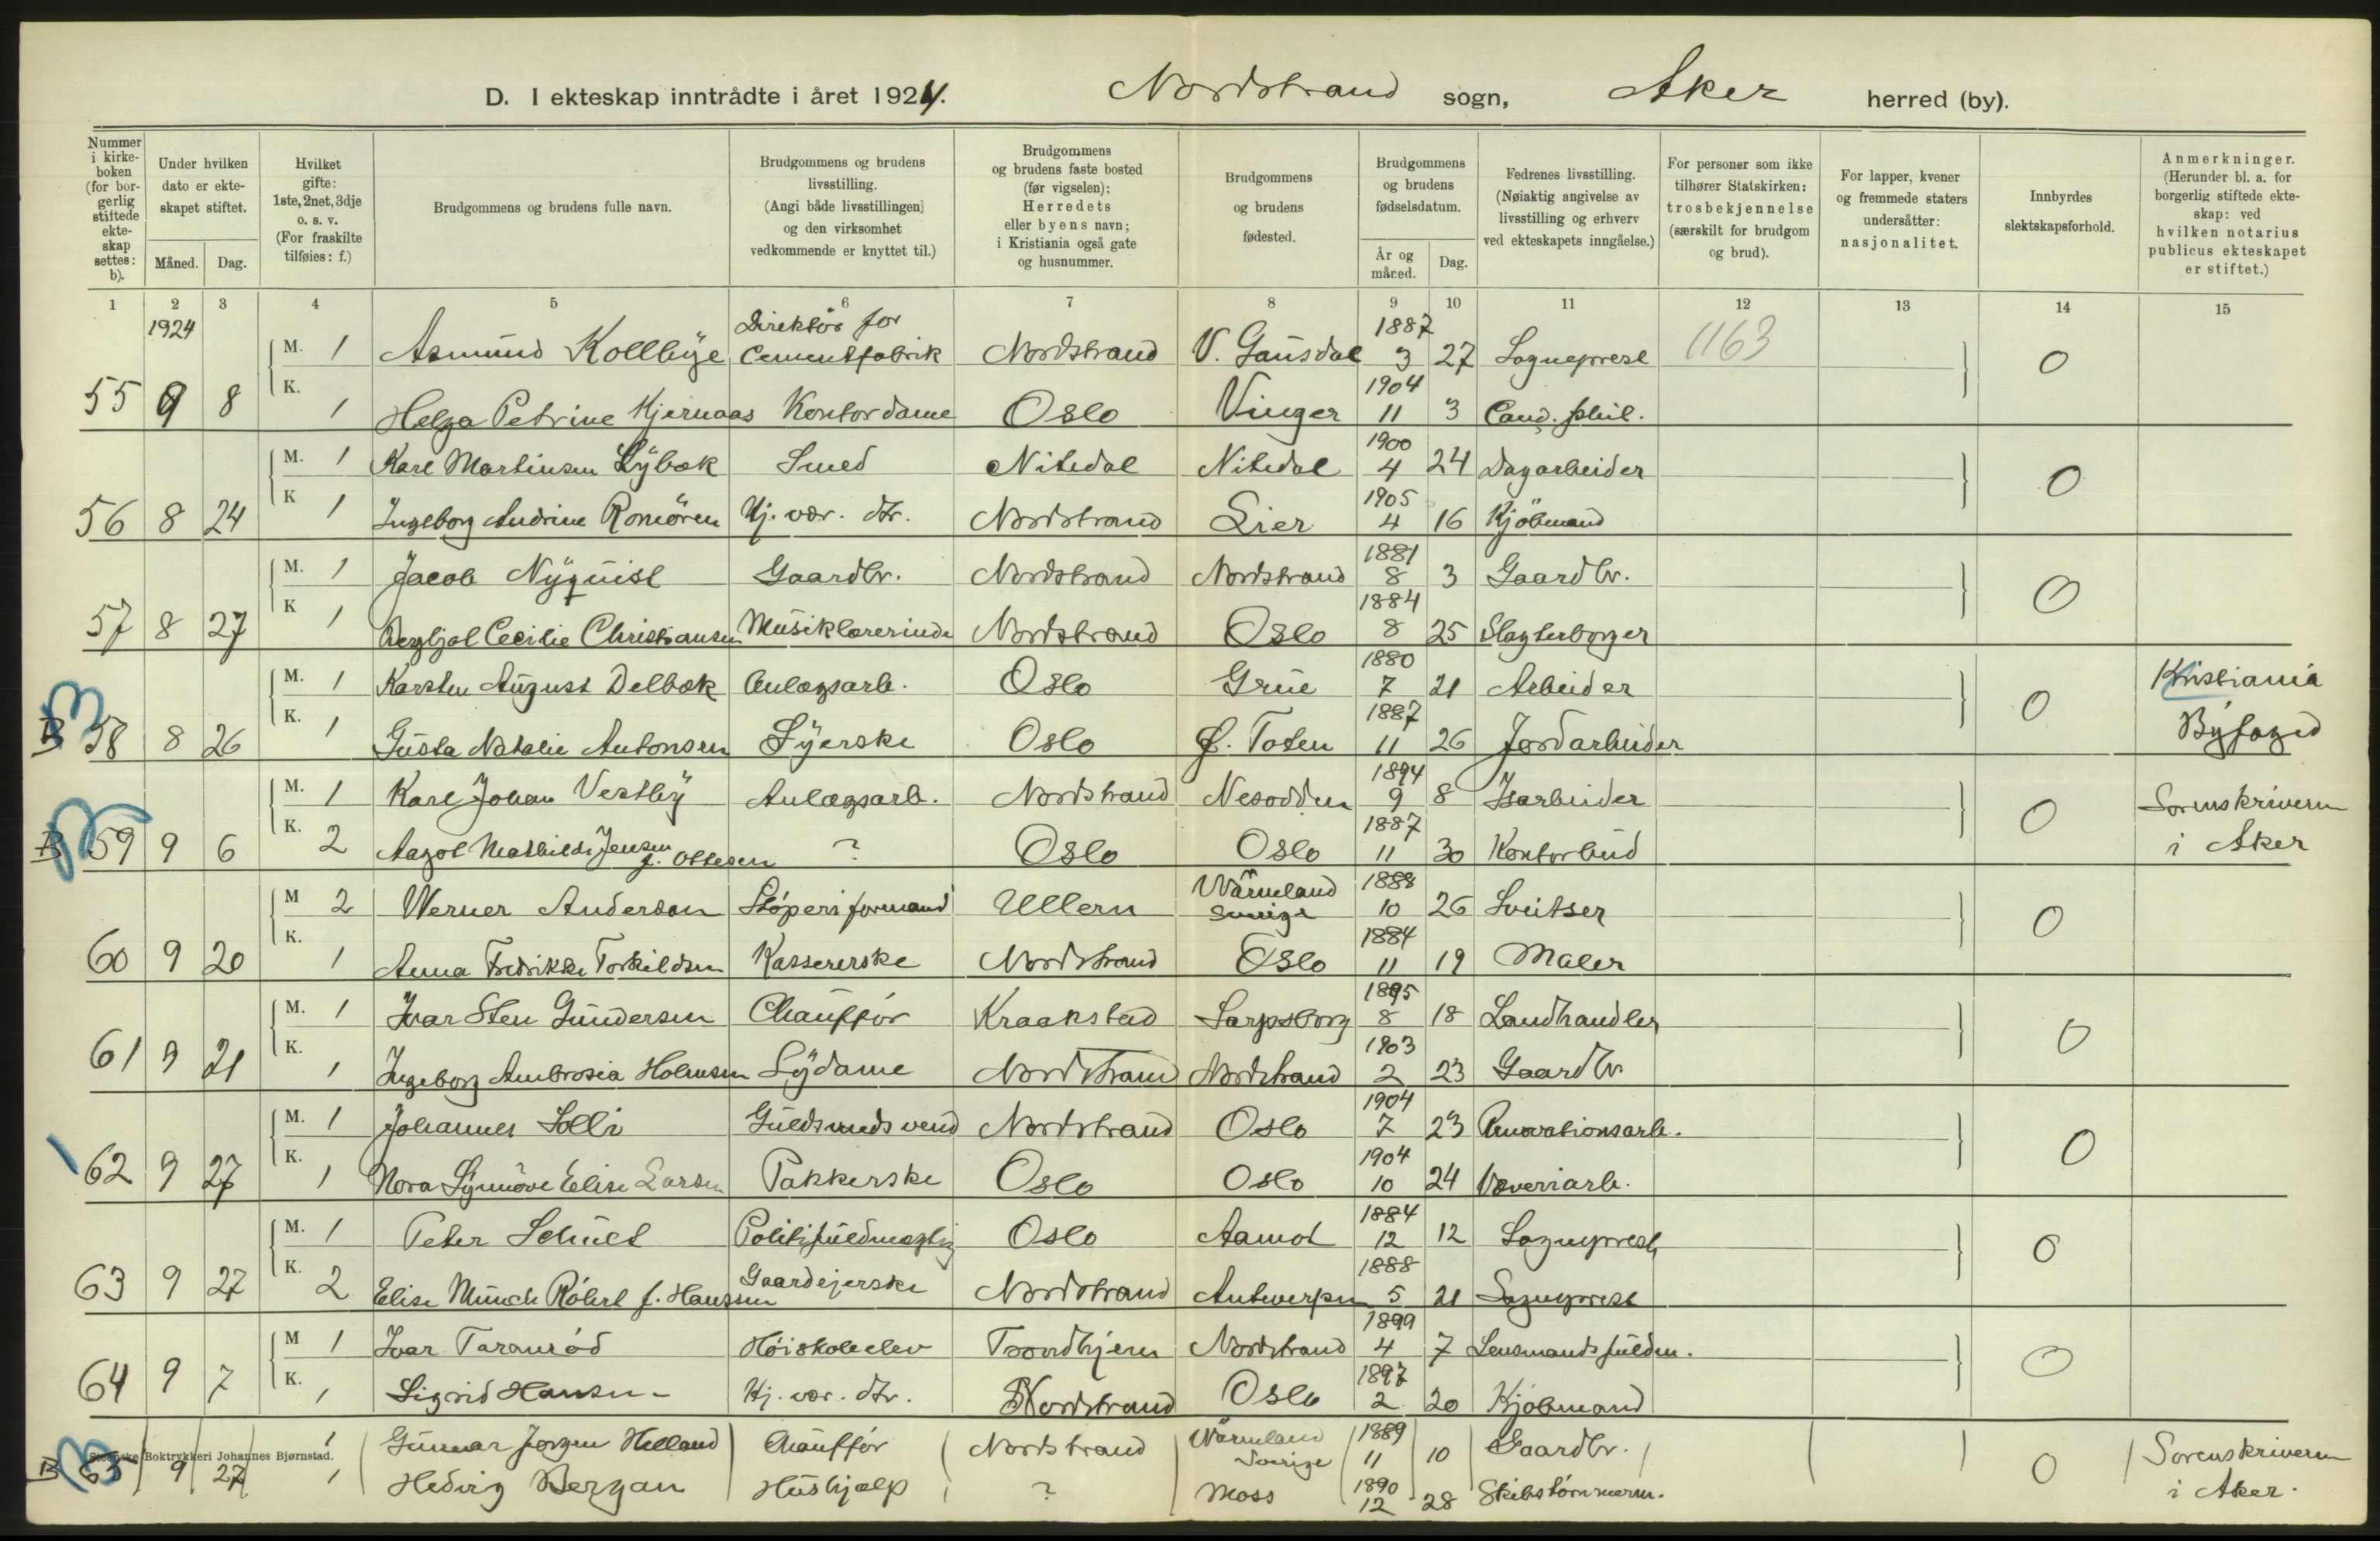 D. I ekteskap inntrådte i året 1924. Nordstrand sogn, Aker herred (by).
Nummer i kirke-boken (for bor-gerlig stiftede ekte-skap settes: b).
Under hvilken dato er ekte-skapet stiftet.
Måned. Dag.
Hvilket gifte: 1ste, 2net, 3dje o. s. v. (For fraskilte tilføies: f.)
Brudgommens og brudens fulle navn.
Brudgommens og brudens livsstilling. (Angi både livsstillingen) og den virksomhet vedkommende er knyttet til.)
Brudgommens og brudens faste bosted (før vigselen): Herredets eller byens navn; i Kristiania også gate og husnummer.
Brudgommens og brudens fødested.
Brudgommens og brudens fødselsdatum.
År og måned. Dag.
Fedrenes livsstilling. (Nøiaktig angivelse av livsstilling og erhverv ved ekteskapets inngåelse.)
For personer som ikke tilhører Statskirken: trosbekjennelse (særskilt for brudgom og brud).
For lapper, kvener og fremmede staters undersåtter: nasjonalitet.
Innbyrdes slektskapsforhold.
Anmerkninger. (Herunder bl. a. for borgerlig stiftede ekte-skap: ved hvilken notarius publicus ekteskapet er stiftet.)
1 2 3 4 5 6 7 8 9 10 11 12 13 14 15
1924
M. 1 Asmund Kollbye Direktør for Cementfabrik Nordstrand V. Gausdal 1887 3 27 Sogneprest 1163 0
55 9 8 K. 1 Helga Petrine Kjernaas Kontordame Oslo Vinger 1904 11 3 Cand. phil.
M. 1 Karl Martinsen Lybæk Smed Nitedal Nitedal 1900 4 24 Dagarbeider 0
56 8 24 K 1 Ingeborg Andrine Romören Hj. vær. dtr. Nordstrand Lier 1905 4 16 Kjöbmand
M. 1 Jacob Nyquist Gaardbr. Nordstrand Nordstrand 1881 8 3 Gaardbr. 0
57 8 27 K 1 Cecilie Christiansen Musiklærerinde Nordstrand Oslo 1884 8 25 Slagterborger
M. 1 Karsten August Delbæk Anlægsarb. Oslo Grue 1880 7 21 Arbeider 0 Kristiania
B 58 8 26 K. 1 Gusta Natalie Antonsen Syerske Oslo Ø. Toten 1887 11 26 Jordarbeider Byfogd
M. 1 Karl Johan Vestby Anlægsarb. Nordstrand Nesodden 1894 9 8 Isarbeider 0 Sorenskriveren
B 59 9 6 K. 2 Aagot Mathilde Jensen f. Ottesen ? Oslo Oslo 1887 11 30 Kontorbud i Aker
M 2 Werner Anderson Støperiformand Ullern Wärmland Sverige 1888 10 26 Sveitser 0
60 9 20 K. 1 Anna Fredrikke Torkildsen Kassererske Nordstrand Oslo 1884 11 19 Maler
M. 1 Ivar Sten Gundersen Chauffør Kraakstad Sarpsborg 1895 8 18 Landhandler 0
61 9 21 K. 1 Ingeborg Ambrosia Holmsen Sydame Nordstrand Nordstrand 1903 2 23 Gaardbr.
M. 1 Johannes Solli Guldsmedsvend Nordstrand Oslo 1904 7 23 Renovationsarb. 0
62 9 27 K. 1 Nora Synnöve Elise Larsen Pakkerske Oslo Oslo 1904 10 24 Væveriarb.
M. 1 Peter Schuct Politifuldmægtig Oslo Aamot 1884 12 12 Sogneprest 0
63 9 27 K. 2 Elise Munch Røhrt f. Hanssen Gaardejerske Nordstrand Antwerpen 1888 5 21 Sogneprest
M 1 Ivar Taranrød Høiskoleelev Trondhjem Nordstrand 1899 4 7 Lensmandsfuldm. 0
64 9 7 K. 1 Sigrid Hansen Hj. vær. dtr. Nordstrand Oslo 1897 2 20 Kjøbmand
1 Gunnar Jørgen Helland Chauffør Nordstrand Wärmland Sverige 1889 11 10 Gaardbr. 0 Sorenskriveren
Steenske Boktrykkeri Johannes Bjørnstad.
B 65 9 27 1 Hedvig Bergan Hushjælp ? Moss 1890 12 28 Skibstømmerm. i Aker.